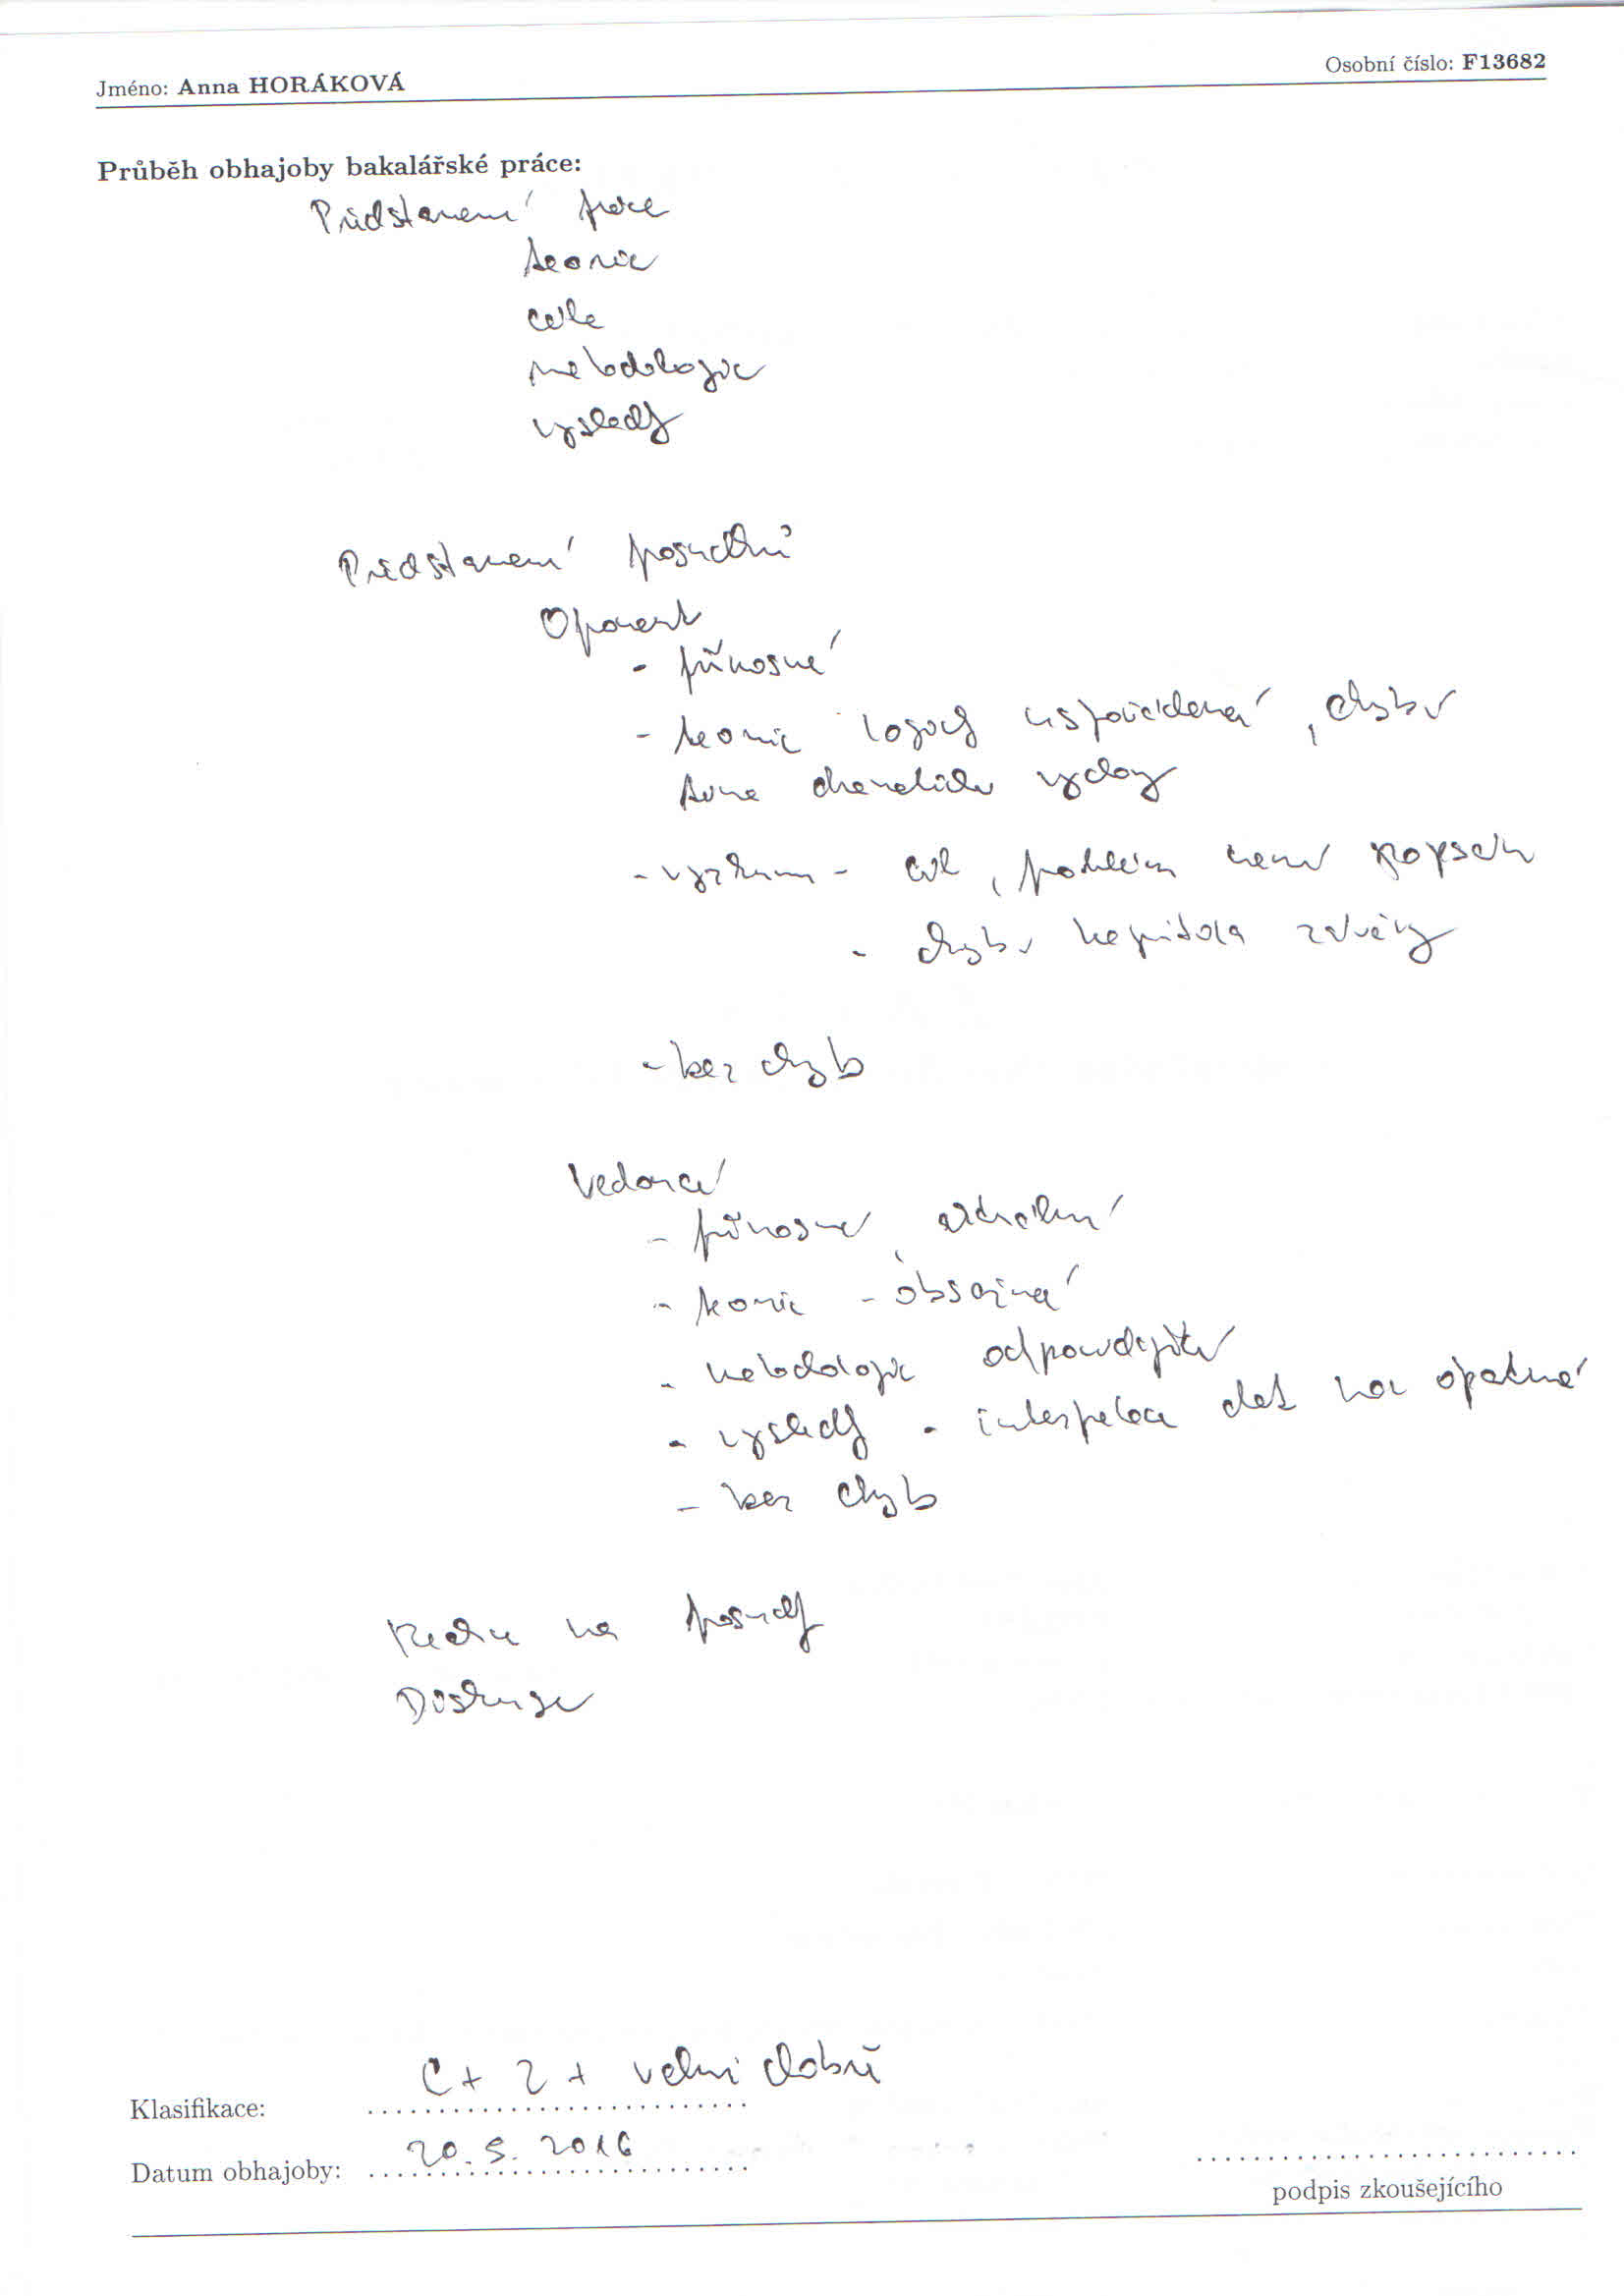 Jméno: Anna HORÁKOVÁ
Osobní číslo: F13682
Průběh obhajoby bakalářské práce:
Představení práce
teorie
cíle
metodologie
výsledky
Představení posudků
Oponent
- přínosné
- teorie logicky uspořádaná, chybí
výchovy
- výzkum - cíl, problém není popsán
- chybí kapitola závěry
- bez chyb
Vedoucí
- přínosné, aktuální
- teorie - obsajná
- metodologie odpovídající
- výsledky - interpretace dat
- bez chyb
Reakce na posudky
Diskuse
Klasifikace: C+ 2+ velmi dobře
Datum obhajoby: 20. 5. 2016
podpis zkoušejícího